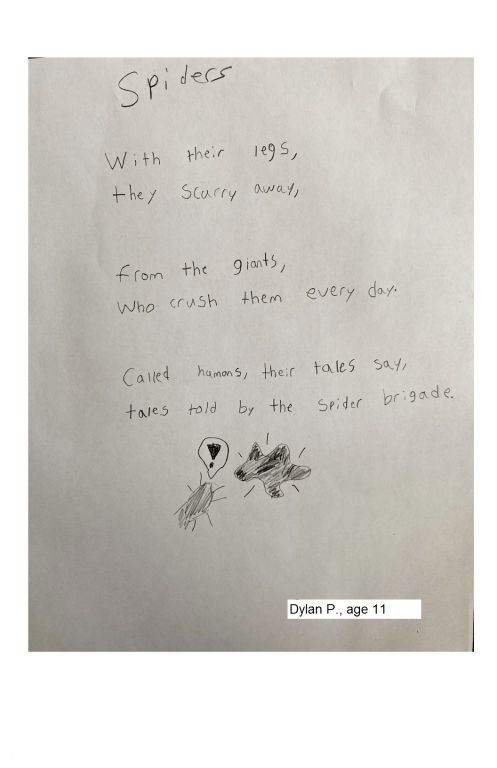 Spiders
With their legs,
they scurry away,
from the giants,
Who crush them every day.
Called humans, their tales say,
tales told by the spider brigade.
!
Dylan P., age 11